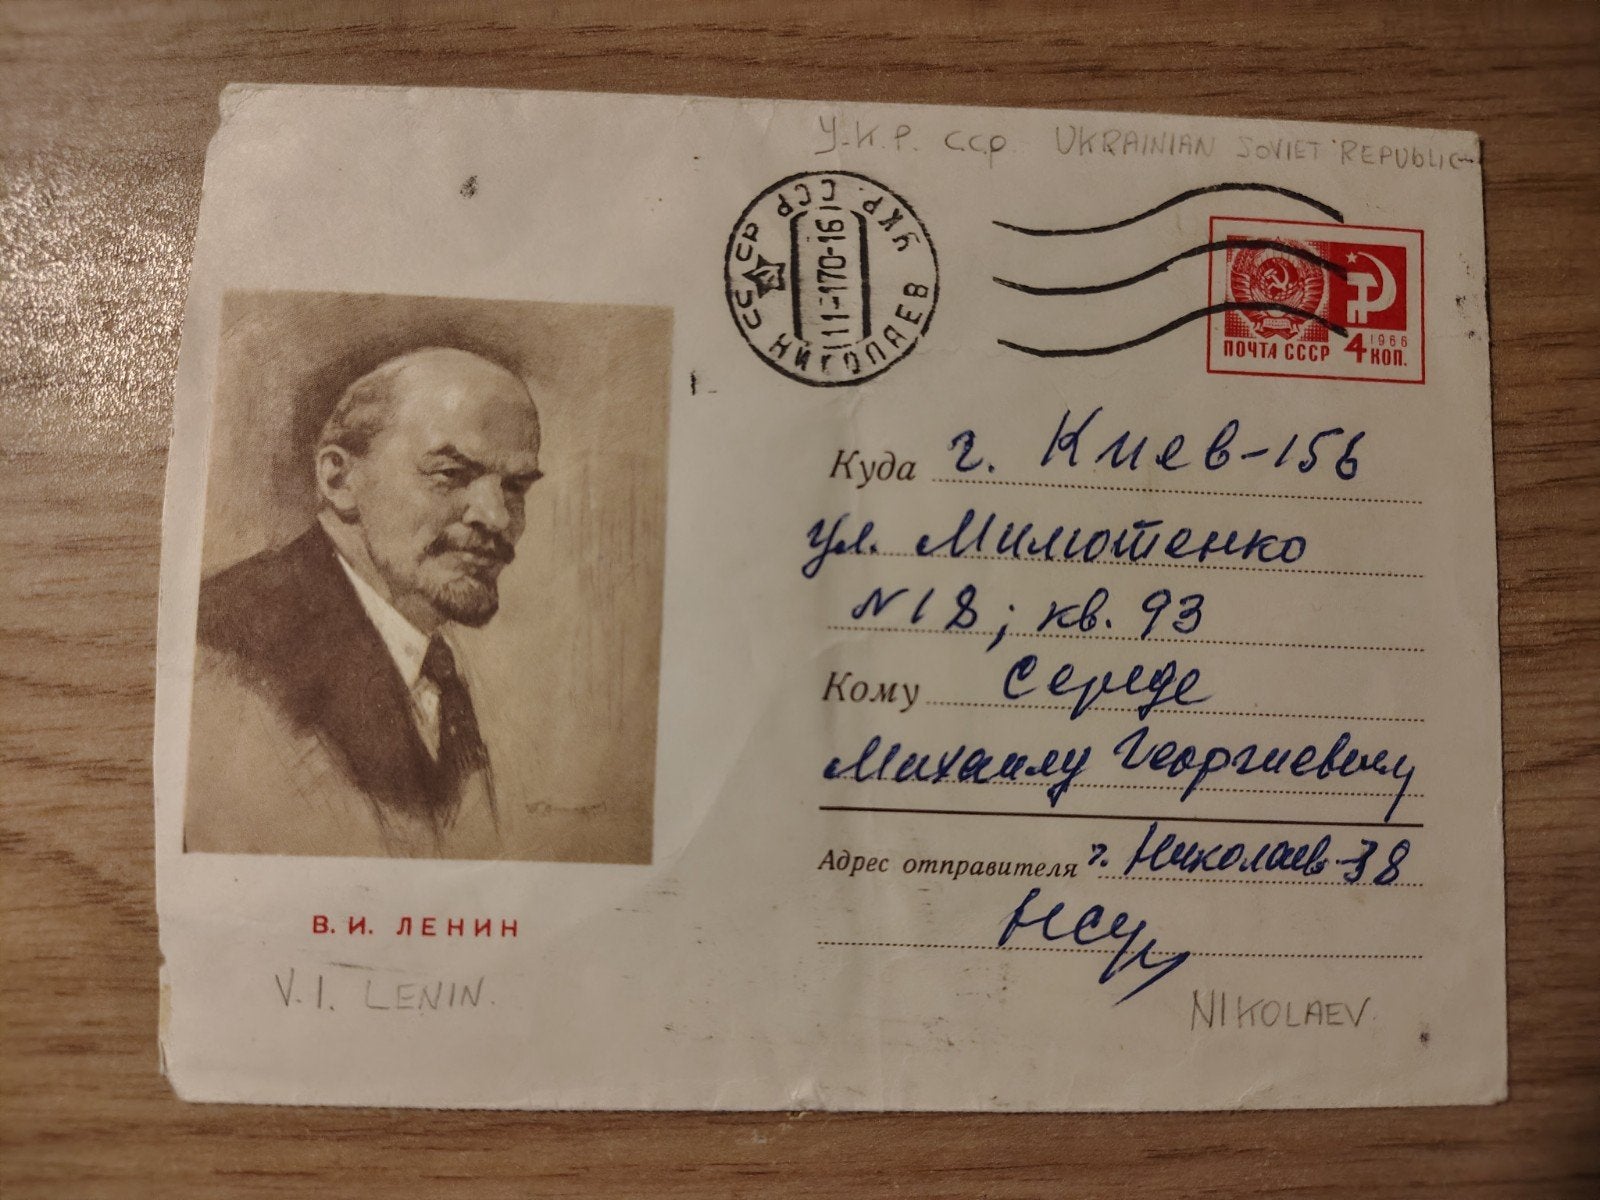 У.К.Р. С.С.Р. UKRAINIAN SOVIET REPUBLIC
СССР УКР. ССР
11-170-16
НИКОЛАЕВ
ПОЧТА СССР 4 КОП.
1966
Куда г. Киев-156
ул. Милютенко
№18; кв. 93
Кому Середе
Михаилу Георгиевичу
Адрес отправителя г. Николаев-38
В. И. ЛЕНИН
V. I. LENIN.
NIKOLAEV.